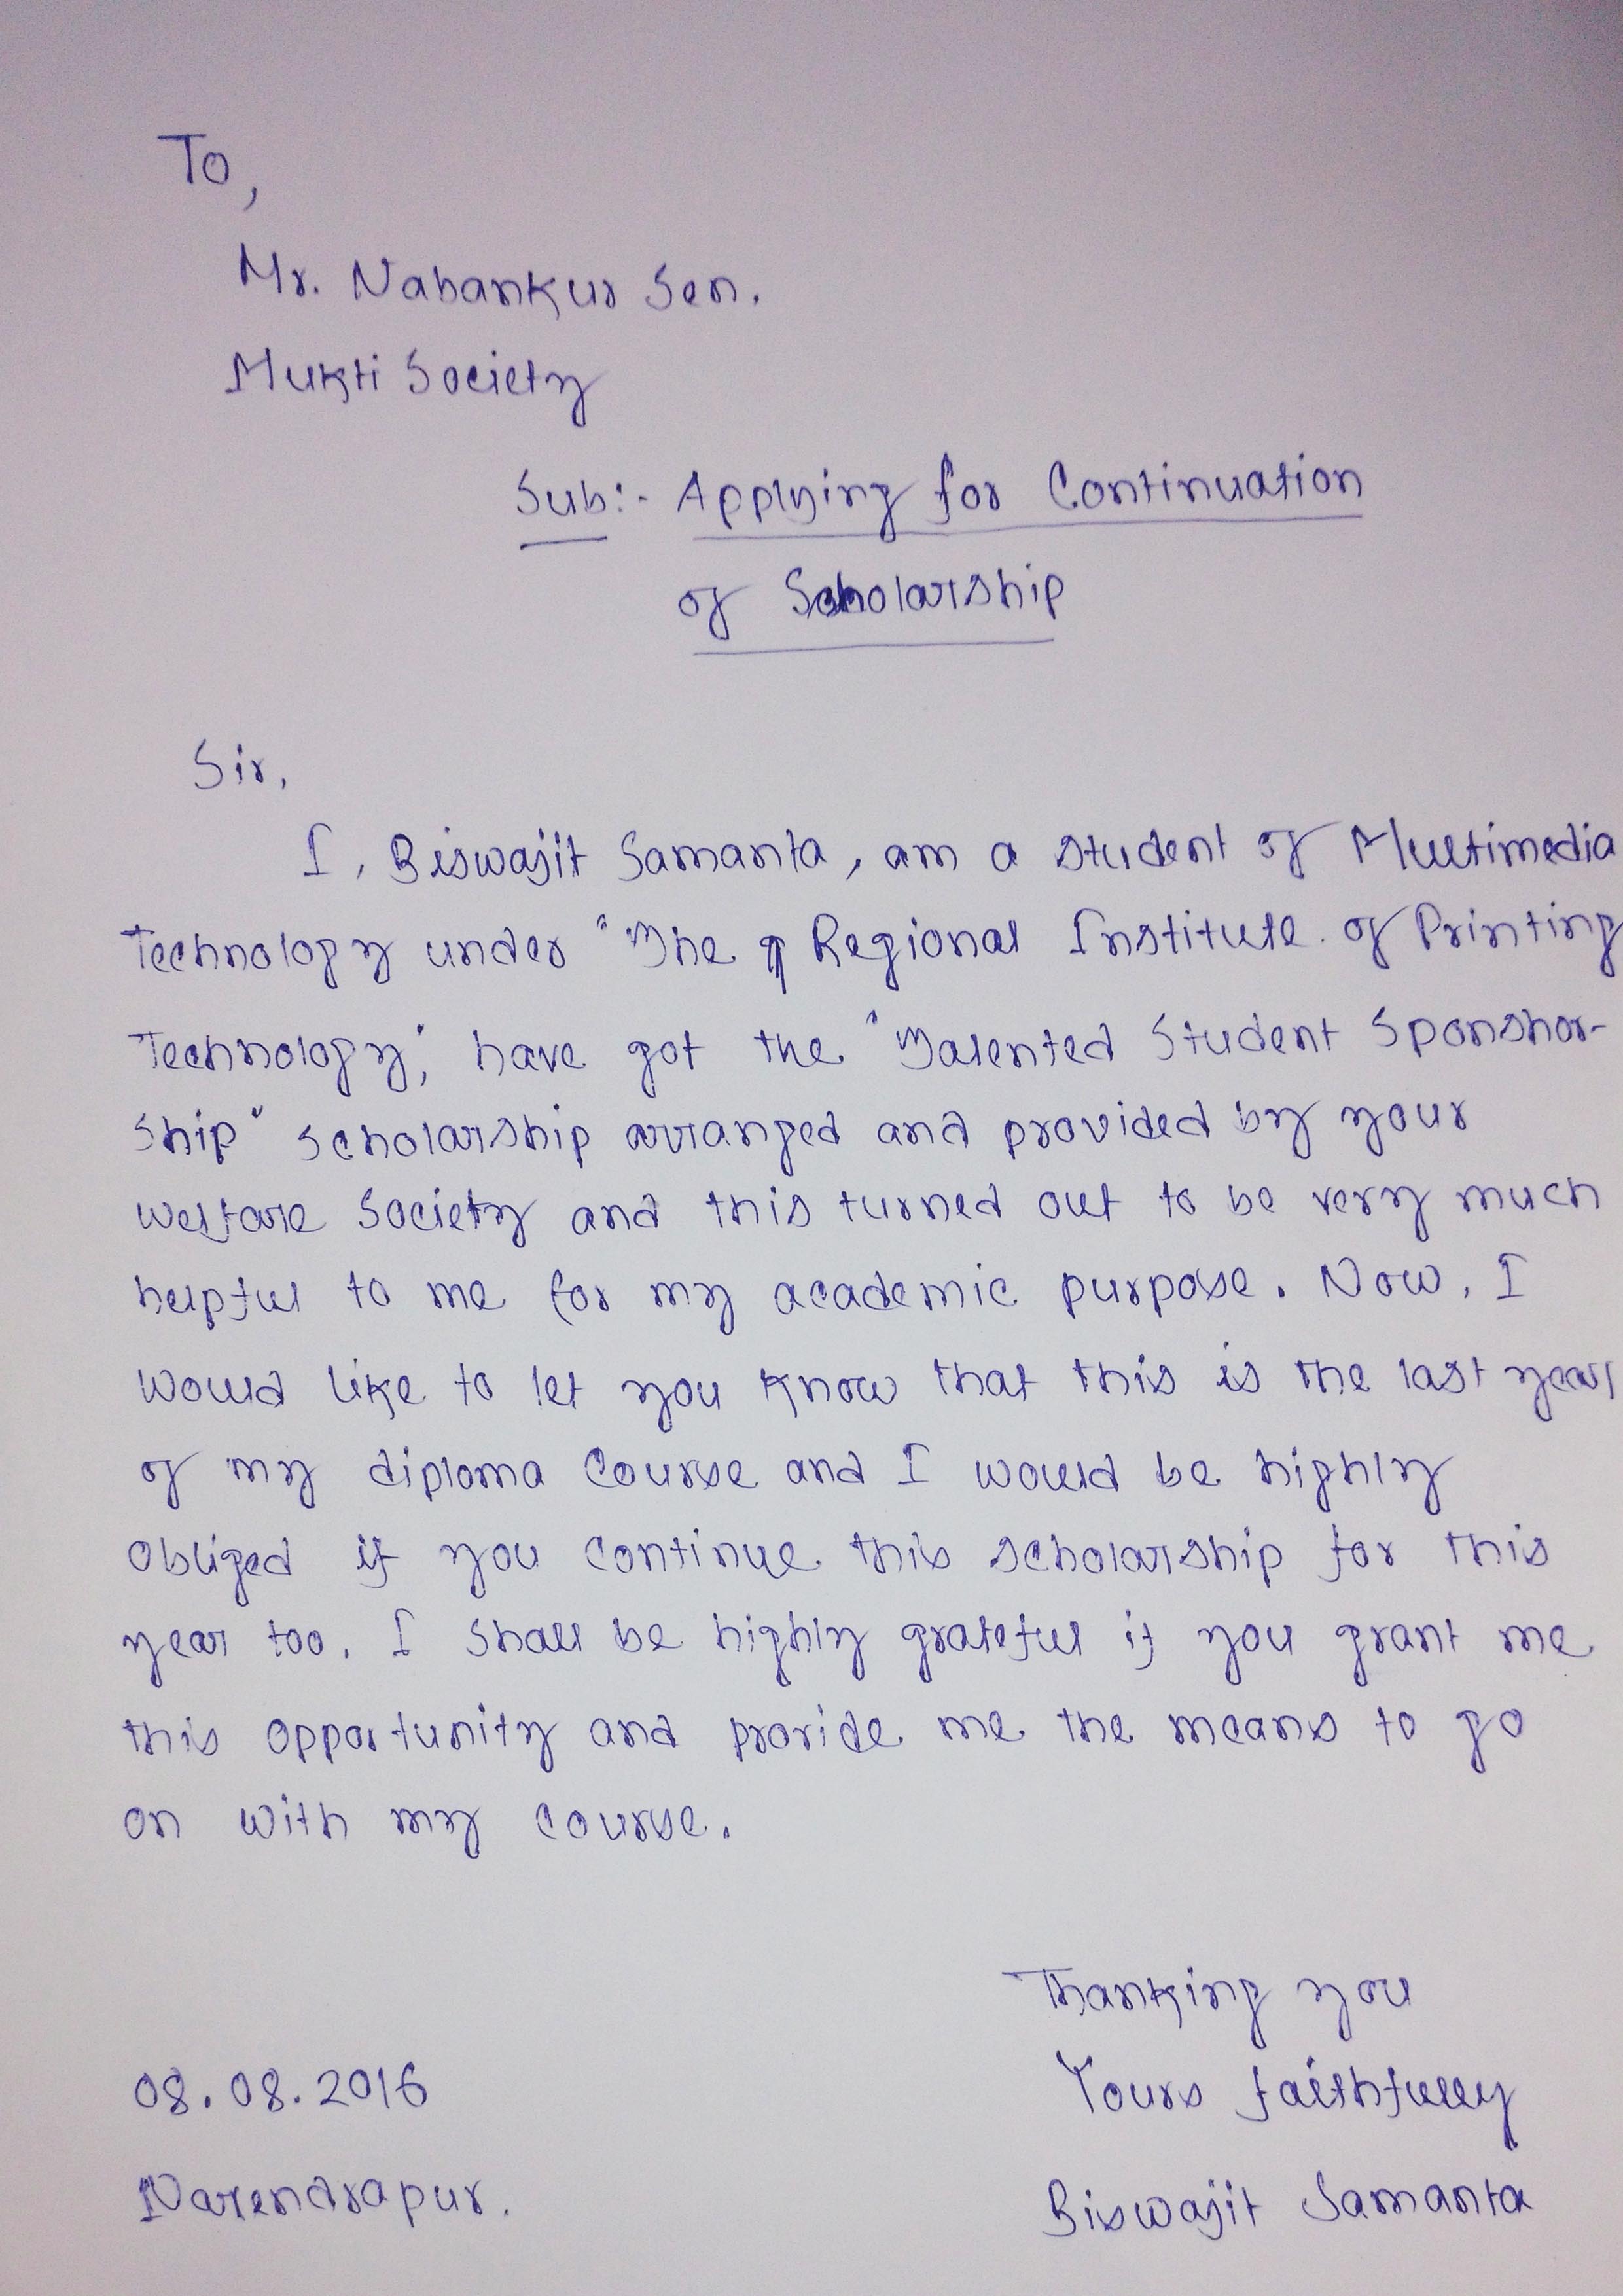 To,
Mr. Nabankur Sen.
Mukti Society
Sub:- Applying for Continuation
of Scholarship
Sir,
I, Biswajit Samanta, am a student of Multimedia
Technology under "The Regional Institute of Printing
Technology", have got the "Talented Student Sponshor-
Ship" scholarship arranged and provided by your
welfare society and this turned out to be very much
helpful to me for my academic purpose. Now, I
would like to let you know that this is the last year
of my diploma course and I would be highly
obliged if you continue this scholarship for this
year too. I shall be highly grateful if you grant me
this opportunity and provide me the means to go
on with my course.
Thanking you
08.08.2016
Yours faithfully
Narendrapur.
Biswajit Samanta